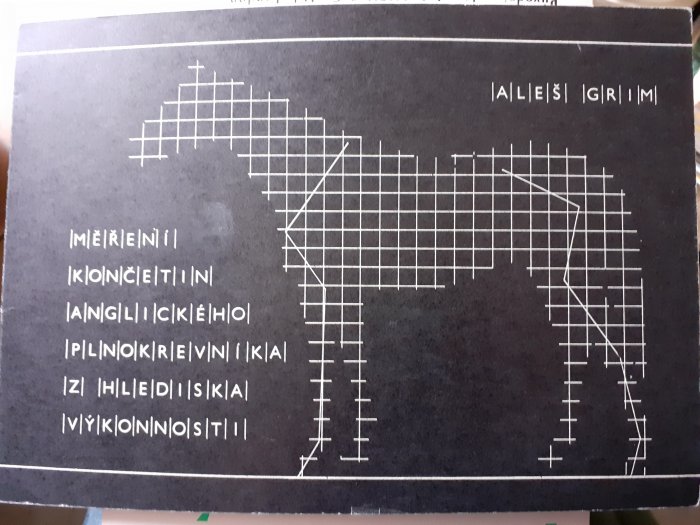 ALEŠ GRIM
MĚŘENÍ
KONČETIN
ANGLICKÉHO
PLNOKREVNÍKA
Z HLEDISKA
VÝKONNOSTI